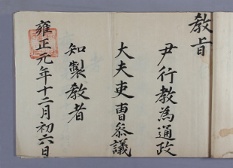 教旨
尹行教為通政
大夫吏曹參議
知製教者
雍正元年十二月初六日